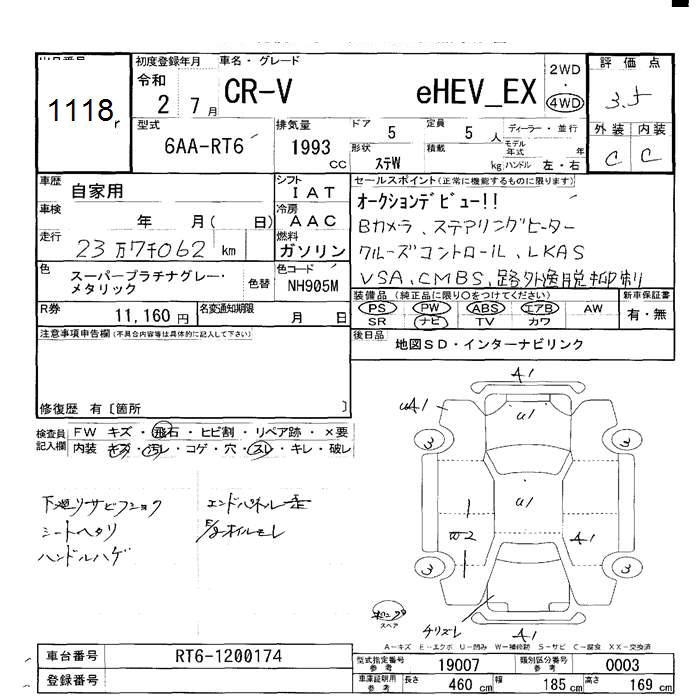 初度登録年月 車名・グレード
評価点
1118r
令和 2 7月
CR-V eHEV_EX
2WD
4WD
3.5
型式 排気量 ドア 定員 ディーラー・並行
外装 内装
6AA-RT6 1993 cc 5 5人
形状 積載 モデル年式 年
ステW kg ハンドル 左・右
C C
車歴 自家用
シフト IAT
セールスポイント(正常に機能するものに限ります)
車検 年 月( 日)
冷房 AAC
オークションデビュー!!
Bカメラ、ステアリングヒーター
走行 23万7千062 km
燃料 ガソリン
クルーズコントロール、LKAS
VSA、CMBS、路外逸脱抑制
色 スーパープラチナグレー・メタリック 色替
色コード NH905M
装備品(純正品に限り○をつけてください) 新車保証書
PS PW ABS エアB AW
SR ナビ TV カワ
有・無
R券 11,160円
名変通知期限 月 日
注意事項申告欄(不具合内容等は具体的に記入して下さい)
後日品 地図SD・インターナビリンク
修復歴 有〔箇所 〕
検査員記入欄
FW キズ・飛石・ヒビ割・リペア跡・×要
内装 キズ・汚レ・コゲ・穴・スレ・キレ・破レ
下廻リサビフショク
シートヘタリ
ハンドルハゲ
エンドパネル歪
E/gオイルモレ
A1
uA1
u1
3 3
u1
W2
A1
3 3
スペア
チリズレ
A1
A-キズ E-エクボ U-凹み W-補修跡 S-サビ C-腐食 XX-交換済
車台番号 RT6-1200174
登録番号
型式指定番号 参考 19007
類別区分番号 参考 0003
車庫証明用 参考 長さ 460cm 幅 185cm 高さ 169cm